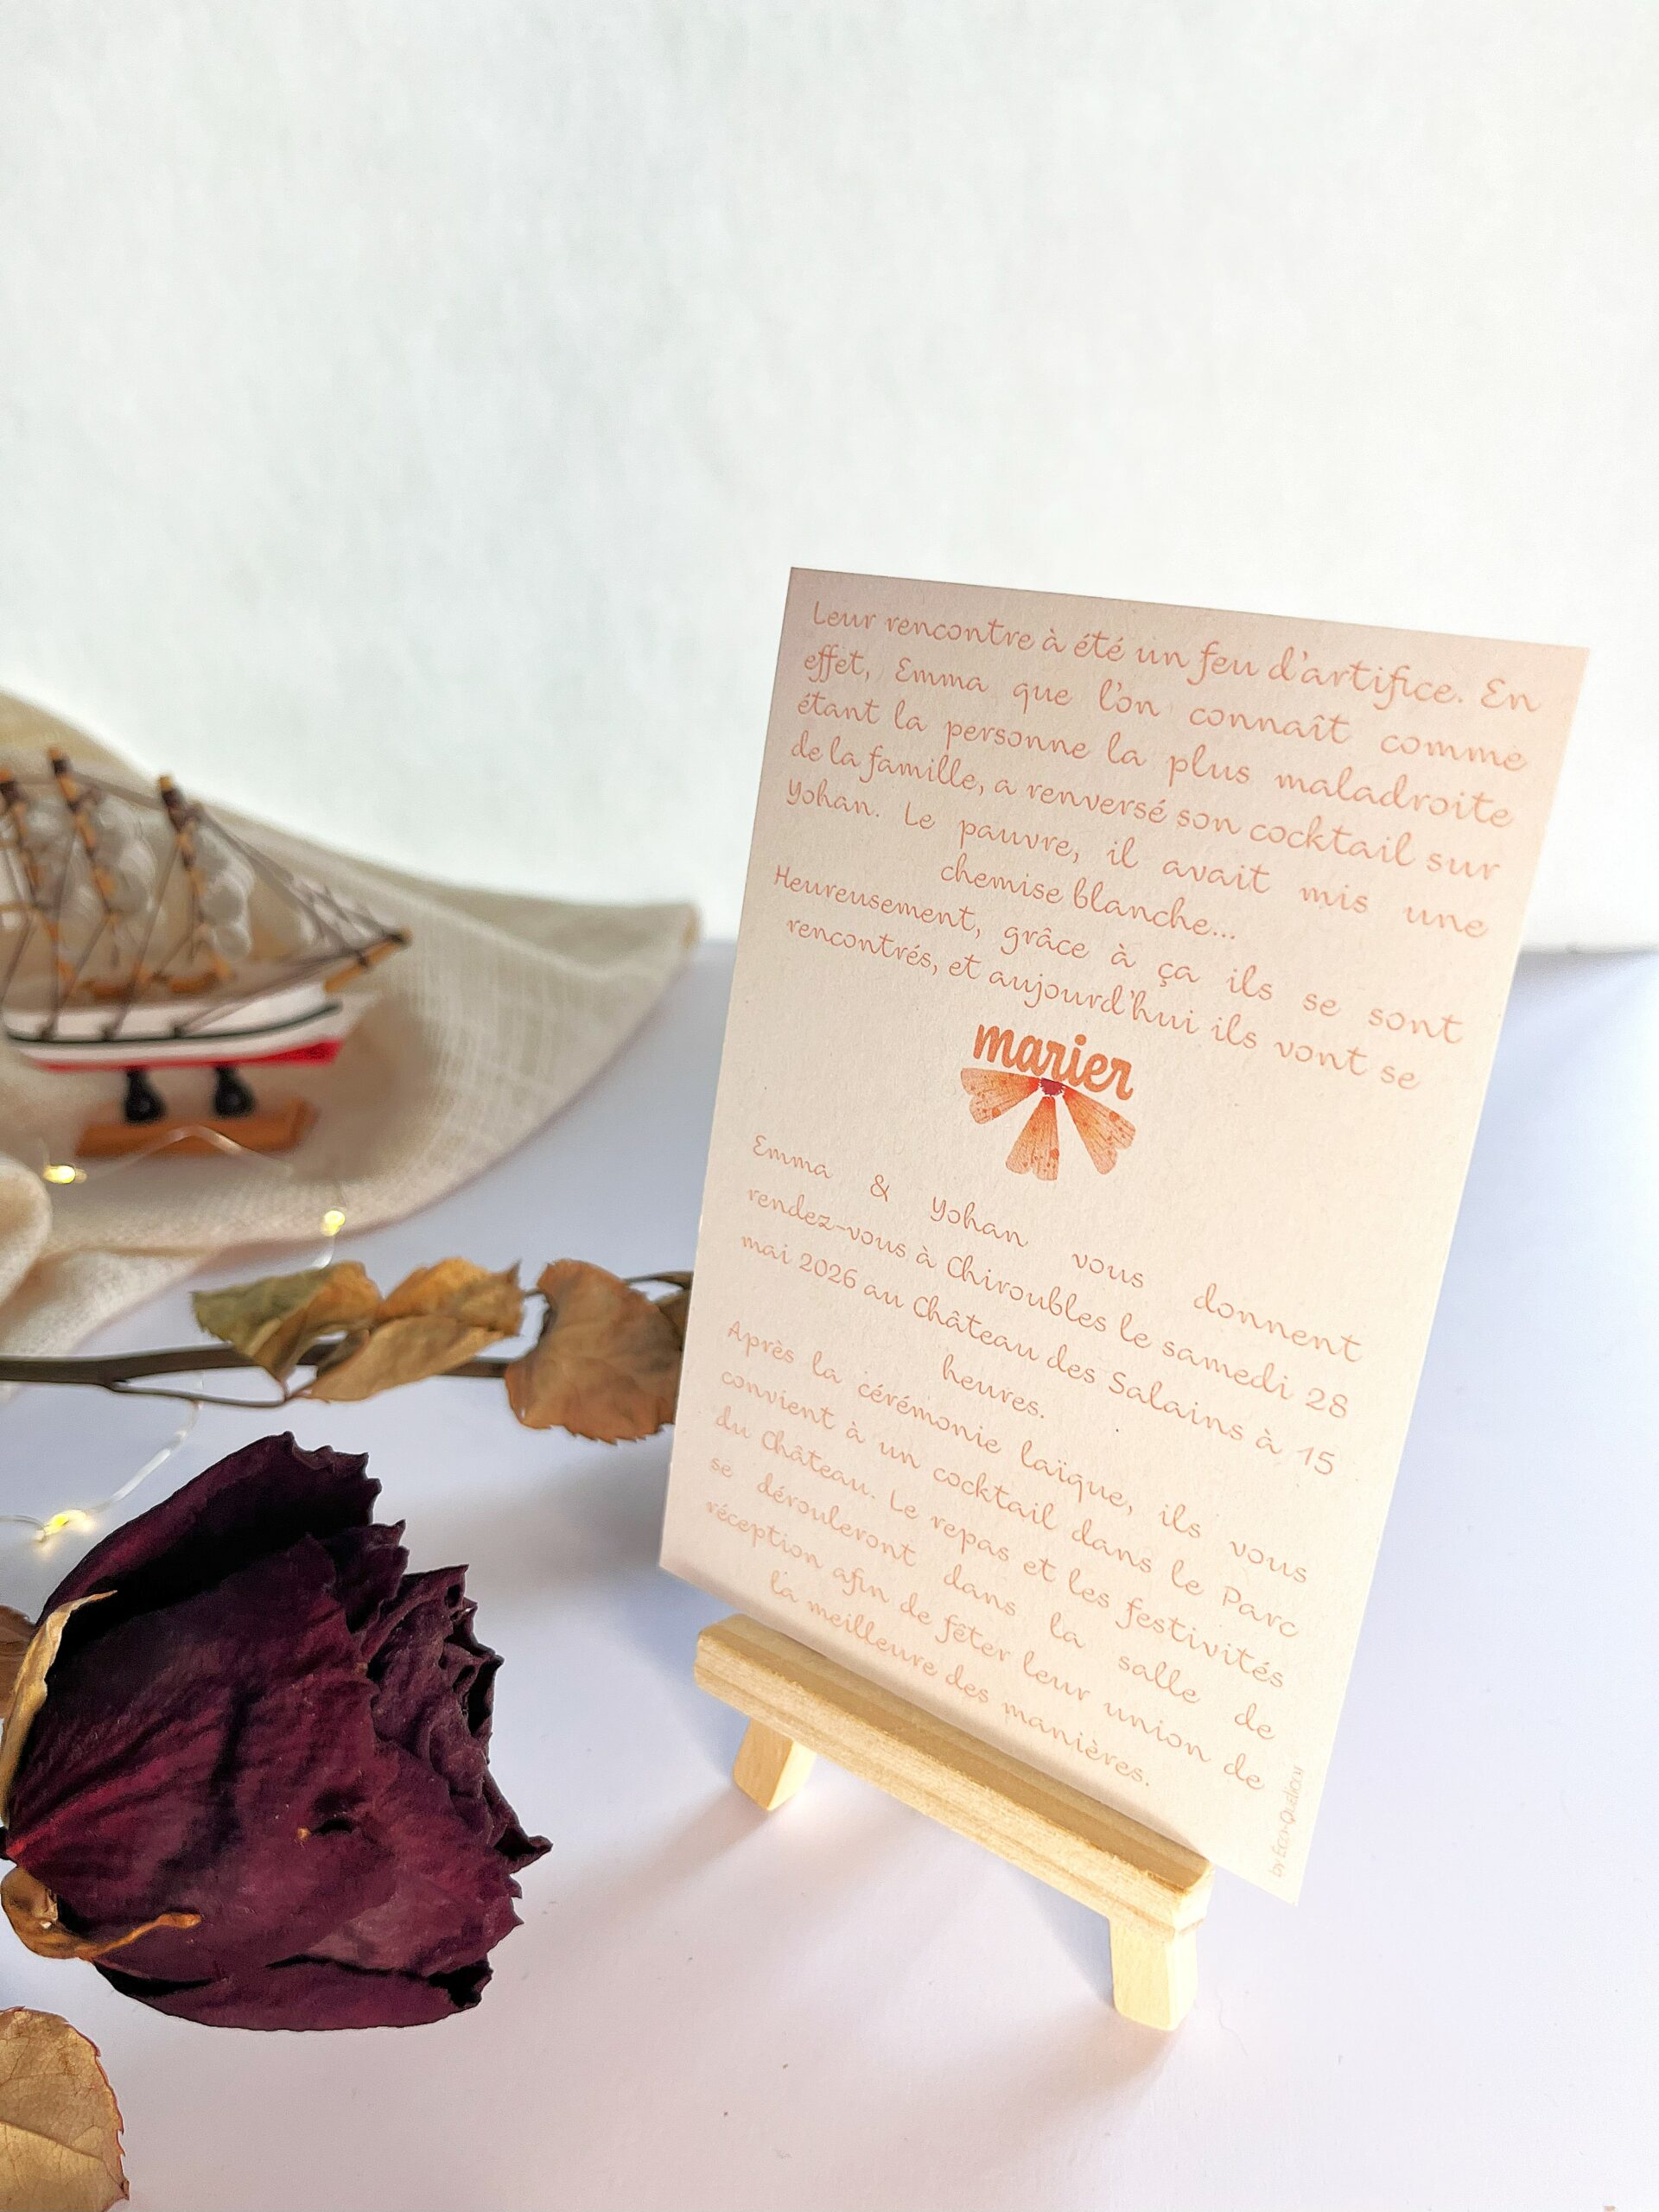 Leur rencontre à été un feu d'artifice. En
effet, Emma que l'on connaît comme
étant la personne la plus maladroite
de la famille, a renversé son cocktail sur
Yohan. Le pauvre, il avait mis une
chemise blanche...
Heureusement, grâce à ça ils se sont
rencontrés, et aujourd'hui ils vont se
marier
Emma & Yohan vous donnent
rendez-vous à Chiroubles le samedi 28
mai 2026 au Château des Salains à 15
heures.
Après la cérémonie laïque, ils vous
convient à un cocktail dans le Parc
du Château. Le repas et les festivités
se dérouleront dans la salle de
réception afin de fêter leur union de
la meilleure des manières.
by